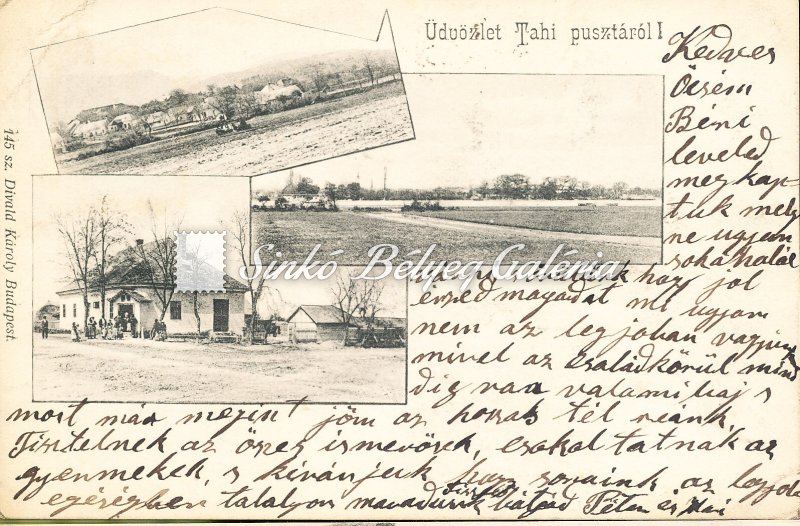 Üdvözlet Tahi pusztáról!
145 sz. Divald Károly Budapest.
Sinkó Bélyeg Galéria
Kedves
Öcsém
Béni
leveled
megkap
tuk mely
ne ugyan
soká
hogy jól
érzed magadat mi ugyan
nem az legjoban vagyunk
mivel az családkörül mind
dig van valami baj s
most már megint jöm az hosszu tél reánk
Tisztelnek az öszes ismerősek, csokoltatnak az
gyenmekek, s kivánjuk hogy soraink az legjobb
egéségben talalyon maradunk Péter és